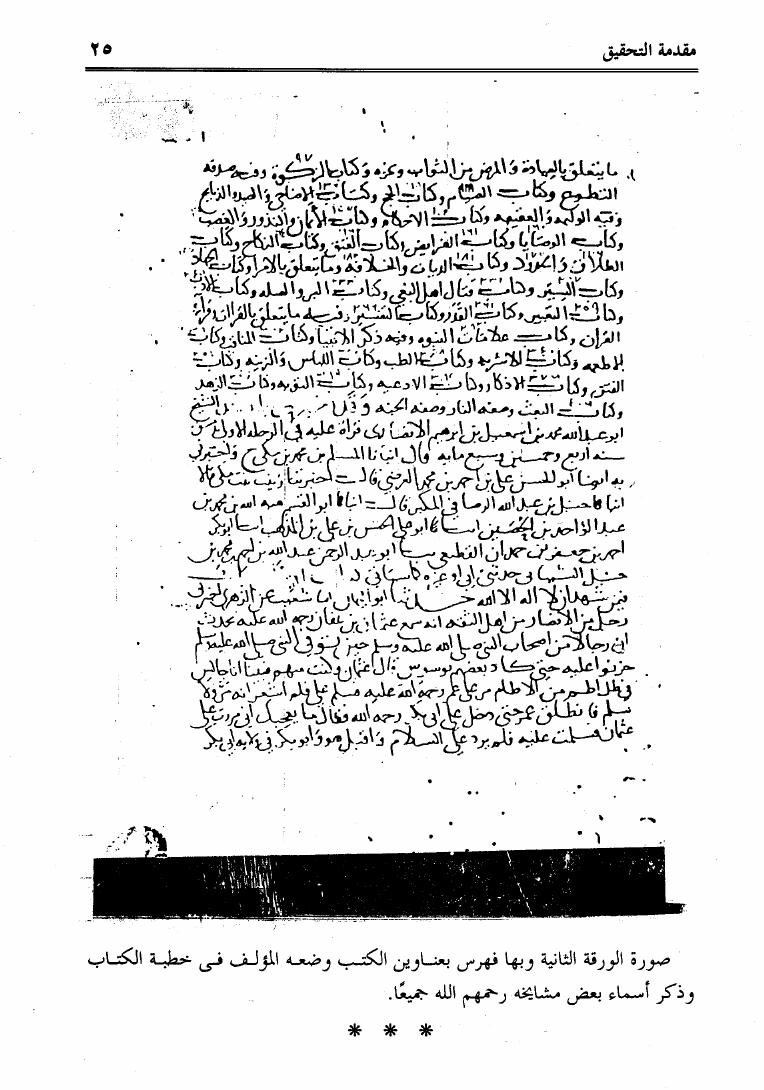 مقدمة التحقيق ٢٥
ما يتعلق بالعيادة والمرض من الثواب وغيره وكتاب الزكوة وفيه صدقة
التطوع وكتاب الصيام وكتاب الحج وكتاب الاضاحي والصيد والذبايح
وفيه الوليمه والعقيقه وكتاب الاحكام وكتاب الأيمان والنذور والغصب
وكتاب الوصايا وكتاب الفرايض وكتاب العتق وكتاب النكاح وكتاب
الطلاق والحدود وكتاب الديات والخلافة وما يتعلق بالامرا وكتاب الجهاد
وكتاب السير وكتاب قتال اهل البغي وكتاب البر والصله وكتاب الادب
وكتاب التعبير وكتاب القدر وكتاب التفسير وفيه ما يتعلق بالقراات وقراة
القران وكتاب علامات النبوه وفيه ذكر الانبيا وكتاب المناقب وكتاب
الاطعمه وكتاب الاشربه وكتاب الطب وكتاب اللباس والزينه وكتاب
الفتن وكتاب الاذكار وكتاب الادعيه وكتاب التوبه وكتاب الزهد
وكتاب البعث وصفه النار وصفه الجنه الشيخ
ابو عبد الله محمد بن اسمعيل بن ابرهيم الانصاري قراة عليه في الرحله الاولى
سنه اربع وخمسين وسبع مايه قال انبانا المسلم بن محمد بن مكي ح واخبرني
به ابو الحسن علي بن احمد بن محمد العرضي قال اخبرتنا زينب بنت مكي قالا
انبا حنبل بن عبد الله الرصافي المكبر قال انبانا ابو القسم هبه الله بن محمد بن
عبد الواحد بن الحصين ابو علي الحسن بن علي بن المذهب ابو بكر
احمد بن جعفر بن حمدان القطيعي ابو عبد الرحمن عبد الله بن احمد بن محمد بن
حنبل الشيباني حدثني ابي
فيمن شهد ان لا اله الا الله ثنا ابو اليمان شعيب عن الزهري اخبرني
رجل من الانصار من اهل الفقه انه سمع عثمان بن عفان رحمه الله عليه يحدث
ان رجالا من اصحاب النبي صلى الله عليه وسلم حين توفي النبي صلى الله عليه وسلم
حزنوا عليه حتى كاد بعضهم يوسوس قال عثمان وكنت منهم فبينا انا جالس
في ظل اطم من الاطام مر علي عمر رحمة الله عليه فسلم علي فلم اشعر انه مر ولا
سلم فانطلق عمر حتى دخل على ابي بكر رحمه الله فقال ما يعجبك اني مررت على
عثمان فسلمت عليه فلم يرد علي السلام واقبل هو وابو بكر في ولايه ابي بكر
صورة الورقة الثانية وبها فهرس بعناوين الكتب وضعه المؤلف في خطبة الكتاب
وذكر أسماء بعض مشايخه رحمهم الله جميعًا.
* * *